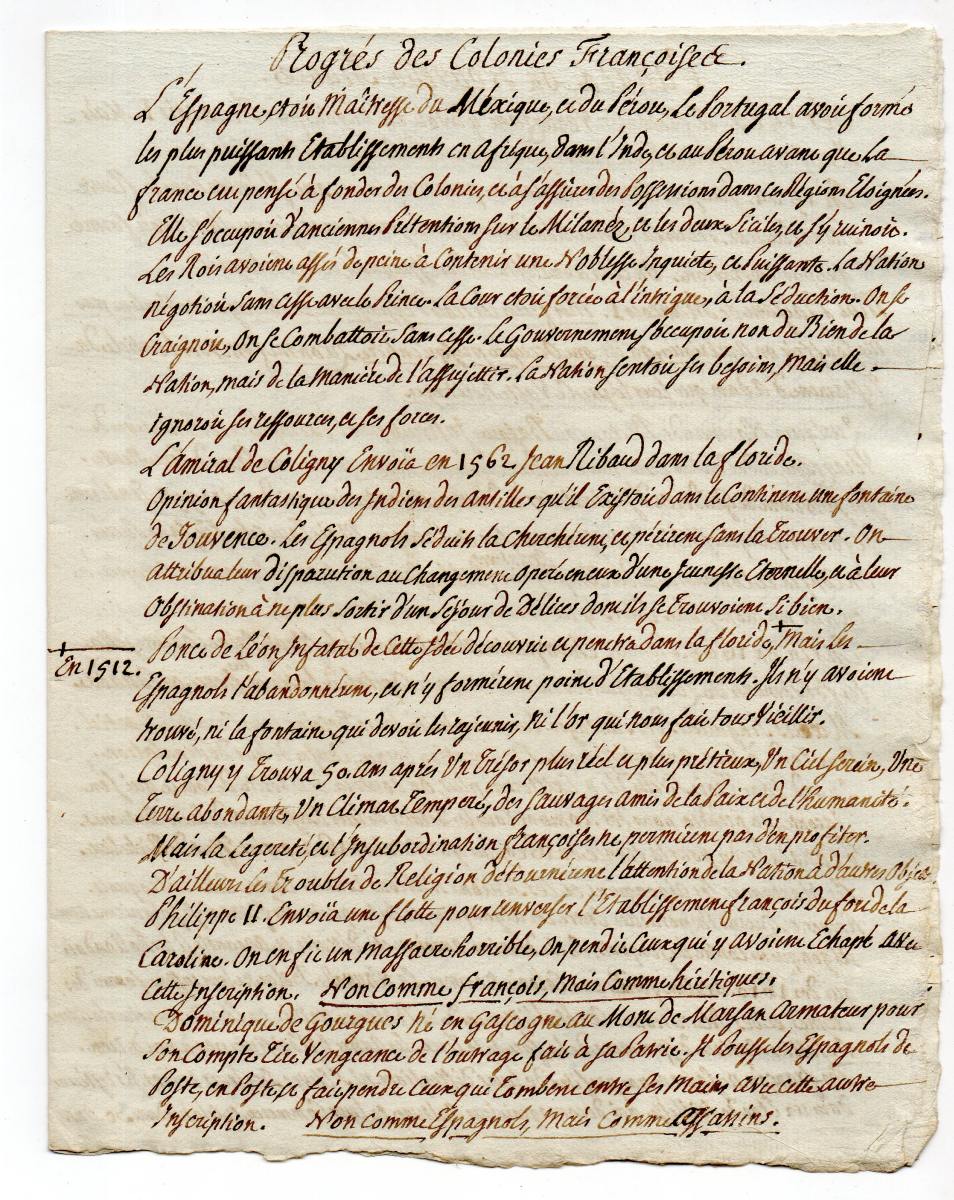 Progrés des Colonies Françoises &.
L'Espagne, etoit Maîtresse du Méxique, et du Pérou, Le Portugal avoit formé
les plus puissants Etablissements en Afrique, dans l'Inde, et au Pérou avant que La
france eut pensé à fonder des Colonies, et à s'assurer des Possessions dans ces Régions Eloignées.
Elle s'occupoit d'anciennes Prétentions sur le Milanéz, et les deux Siciles, et s'y ruinoit.
Les Rois avoient assés de peine à Contenir une Noblesse Inquiete, et Puissante. La Nation
négotioit sans cesse avec le Prince. La Cour etoit forcée à l'intrigue, à la Séduction. On se
Craignoit, On se Combattoit sans cesse. Le Gouvernement s'occupoit non du Bien de la
Nation, mais de la Maniére de l'assujettir. La Nation sentoit ses besoins, Mais elle
ignoroit ses ressources, et ses forces.
L'amiral de Coligny Envoïa en 1562 Jean Ribaud dans la floride.
Opinion fantastique des Indiens des antilles qu'il Existoit dans le Continent une fontaine
de Jouvence. Les Espagnols séduits la cherchérent, et périrent sans la Trouver. On
attribua leur disparution au Changement Operé en eux d'une Jeunesse Eternelle, et à leur
Obstination à ne plus sortir d'un séjour de Délices dont ils se Trouvoient si bien.
Ponce de Léon Infatué de Cette Idée découvrit et penetra dans la floride,+ Mais les
+ En 1512.
Espagnols l'abandonnérent, et n'y formérent point d'Etablissements. Ils n'y avoient
trouvé, ni la fontaine qui devoit les rajeunir, ni l'or qui nous fait tous Vieillir.
Coligny y Trouva 50. ans après Un Trésor plus réel et plus prétieux, Un Ciel serein, Une
Terre abondante, Un Climat Temperé, des sauvages amis de la Paix et de l'humanité.
Mais la Legereté, et l'Insubordination françoises ne permirent pas d'en profiter.
D'ailleurs Les Troubles de Religion détournérent l'attention de la Nation à d'autres Objets
Philippe II. Envoïa une flotte pour renverser l'Etablissement françois du fort de la
Caroline. On en fit un Massacre horrible, On pendit Ceux qui y avoient Echapé avec
Cette Inscription. Non Comme françois, Mais Comme hérétiques.
Dominique de Gourgues né en Gascogne au Mont de Marsan Armateur pour
son Compte Tire Vengeance de l'outrage fait à sa Patrie. Il Pousse les Espagnols de
Poste, en Poste et fait pendre Ceux qui Tombent entre ses Mains avec cette autre
Inscription. Non comme Espagnols, Mais Comme assassins.